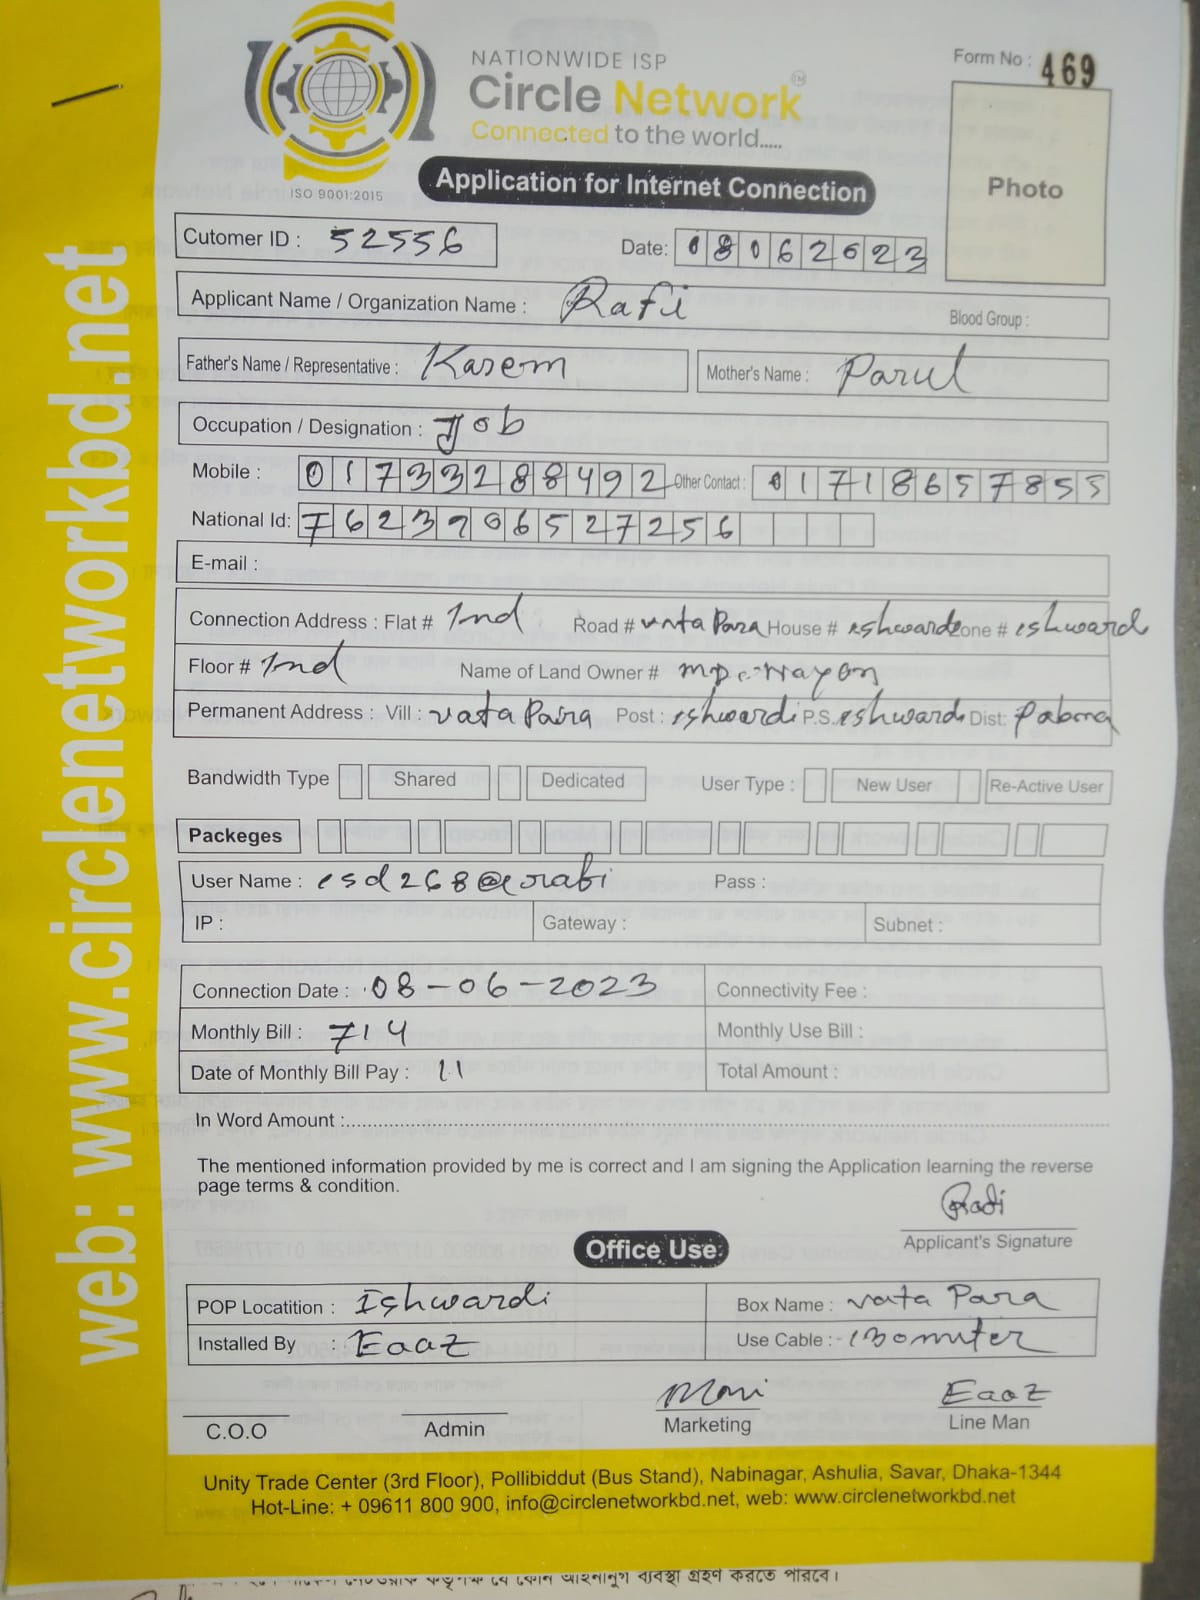 NATIONWIDE ISP
Circle Network TM
Connected to the world.....
ISO 9001:2015
Form No : 469
Photo
Application for Internet Connection
web: www.circlenetworkbd.net
Cutomer ID : 52556 Date: 08062023
Applicant Name / Organization Name : Rafi Blood Group :
Father's Name / Representative : Kasem Mother's Name : Parul
Occupation / Designation : Job
Mobile : 01733288492 Other Contact : 01718657855
National Id: 7623906527256
E-mail :
Connection Address : Flat # 2nd Road # vata Para House # eshwardi Zone # eshward
Floor # 2nd Name of Land Owner # MD. Nayon
Permanent Address : Vill : vata Para Post : eshwardi P.S. eshwardi Dist: Pabna
Bandwidth Type Shared Dedicated User Type : New User Re-Active User
Packeges
User Name : esd268@rabi Pass :
IP : Gateway : Subnet :
Connection Date : 08-06-2023 Connectivity Fee :
Monthly Bill : 714 Monthly Use Bill :
Date of Monthly Bill Pay : 11 Total Amount :
In Word Amount :
The mentioned information provided by me is correct and I am signing the Application learning the reverse
page terms & condition.
Applicant's Signature
Office Use
POP Locatition : Ishwardi Box Name : vata Para
Installed By : Eaaz Use Cable : 130 miter
Moni Eaaz
C.O.O Admin Marketing Line Man
Unity Trade Center (3rd Floor), Pollibiddut (Bus Stand), Nabinagar, Ashulia, Savar, Dhaka-1344
Hot-Line: + 09611 800 900, info@circlenetworkbd.net, web: www.circlenetworkbd.net
যে কোন আইনানুগ ব্যবস্থা গ্রহণ করতে পারবে।